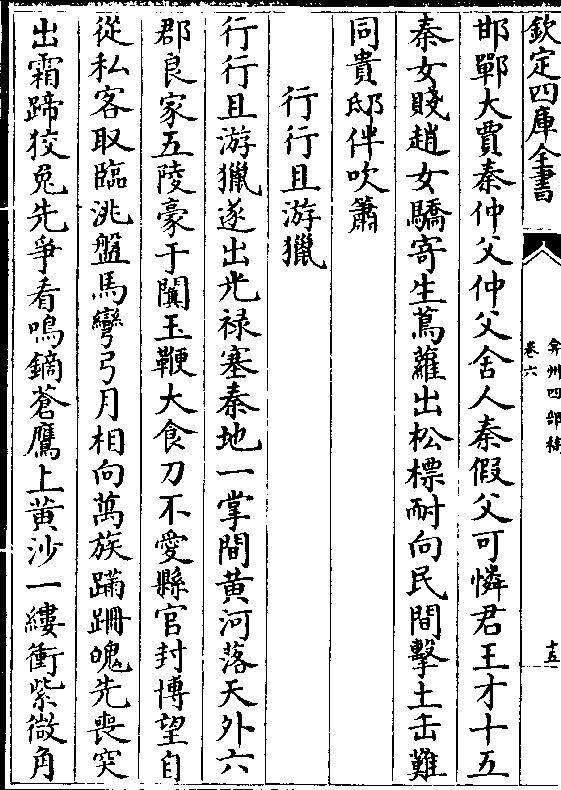 欽定四庫全書
弇州四部稿
卷六
十五
邯鄲大賈秦仲父仲父舍人秦假父可憐君王才十五
秦女賤趙女驕寄生蔦蘿出松標耐向民間擊土缶難
同貴邸伴吹簫
行行且游獵
行行且游獵遂出光禄塞秦地一掌間黄河落天外六
郡良家五陵豪于闐玉鞭大食刀不愛縣官封博望自
從私客取臨洮盤馬彎弓月相向萬族蹣跚魄先喪突
出霜蹄狡兎先爭看鳴鏑蒼鷹上黄沙一縷衝紫微角